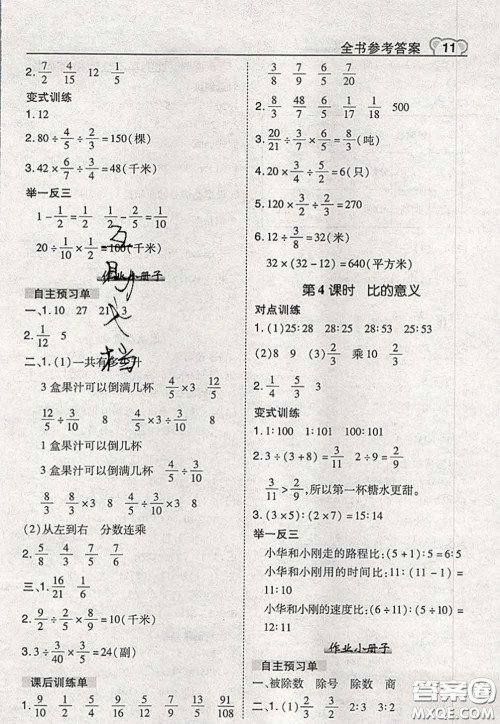 全书参考答案 11
2. 7/2 2/15 12 1/5
变式训练
1. 12
2. 80 ÷ 4/5 ÷ 2/3 = 150(棵)
3. 42 × 6/7 ÷ 3/4 = 48(千米)
举一反三
1 - 1/2 = 1/2 1/2 - 2/5 = 1/10
20 ÷ 1/10 × 1/2 = 100(千米)
作业小册子
自主预习单
一、1. 10 27 21 3
2. 1/12 5
二、1. (1)一共有多少升
3 盒果汁可以倒满几杯 4/5 × 3 4/5 × 3
3/10 12/5 ÷ 3/10 8 8
1 盒果汁可以倒几杯 4/5 ÷ 3/10
3 盒果汁可以倒满几杯 4/5 ÷ 3/10 × 3 4/5 ÷
3/10 8/3 8/3 × 3 8
(2)从左到右 分数连乘
2. 5/8 4/3 7/10 2/5
三、1. 16/21 1/6
2. 9/2 ÷ 2/5 × 8/9 = 10(千米)
3. 3 ÷ 3/10 × 4/5 × 3 = 24(副)
课后训练单
1. 9/10 1/2 1/5 2/3 8/9 1/10 9/8 91/2
3/8 4/7 1/4 4/7 1/9
2. 8/3 48/7 6/5 1/4 4/15 500
3. 20/21 ÷ 3/7 × 6/5 = 8/3(吨)
4. 20 × 1/5 ÷ 2/3 = 6(只)
5. 120 ÷ 2/3 × 3/2 = 270
6. 12 ÷ 3/8 = 32(米)
32 × (32 - 12) = 640(平方米)
第 4 课时 比的意义
对点训练
1. (1)25∶28 28∶25 28∶53 25∶53
(2)8 9 (3)2/5 5/2
2. 1/4 4/5 5/3
变式训练
1. 1∶100 1∶101 100∶101
2. 3 ÷ (3 + 8) = 3/11 2 ÷ 9 = 2/9
3/11 > 2/9,所以第一杯糖水更甜。
3. (3 × 5) ÷ (5 × 2) = 15∶10
举一反三
小华和小刚走的路程比∶(5 + 1)∶5 = 6∶5
小华和小刚用的时间比∶11∶(11 - 1) =
11∶10
小华和小刚的速度比∶(6 ÷ 11)∶(5 ÷ 10) =
12∶11
作业小册子
自主预习单
一、被除数 除号 除数 商
答案圈
MXQE.COM